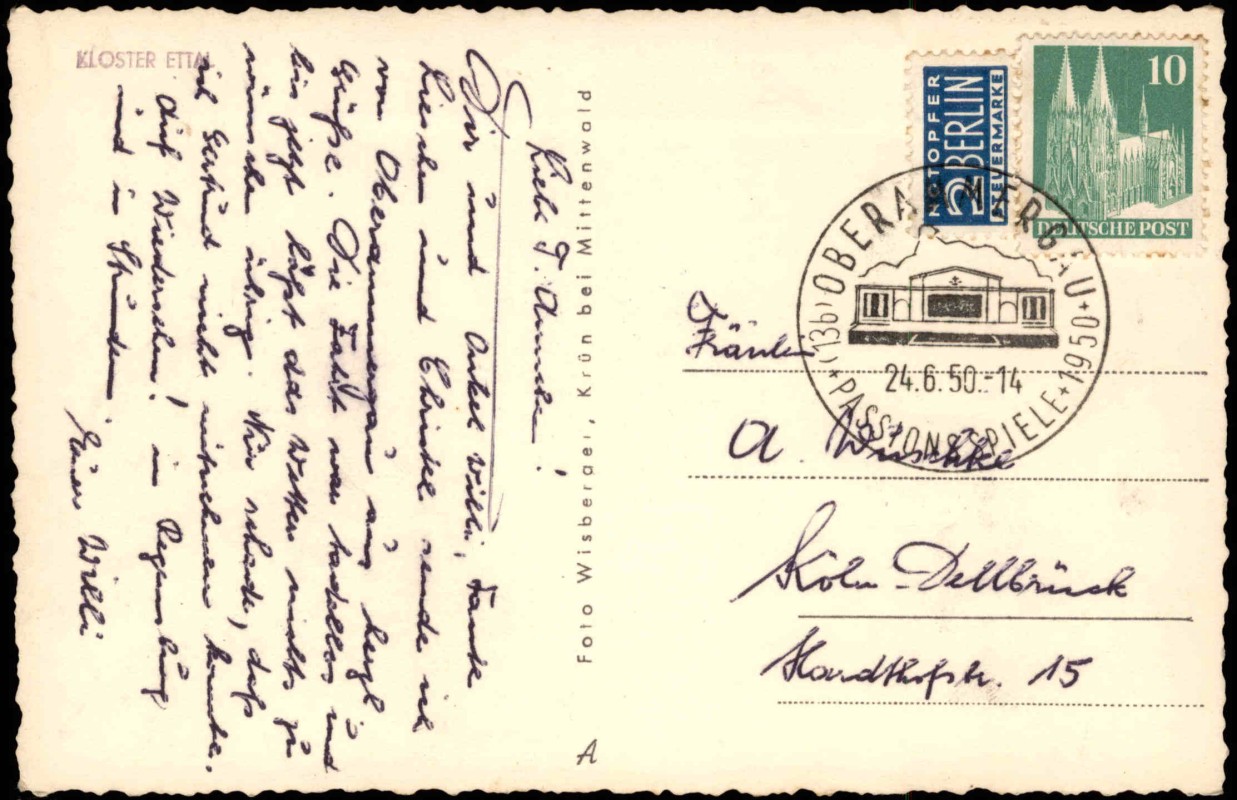 KLOSTER ETTAL
Liebe T. Annchen!
Dir und Onkel Willi, Tante
Lieschen und Christel sende ich
von Oberammergau aus herzl.
Grüße. Die Fahrt war tadellos und
bis jetzt läßt das Wetter nichts zu
wünschen übrig. Nur schade, daß
ich Gertrud nicht mitnehmen konnte.
Auf Wiedersehen! in Regensburg
sind in Stunden.
Euer Willi
Foto Wisberger, Krün bei Mittenwald
A
NOTOPFER
2 BERLIN
STEUERMARKE
10
DEUTSCHE POST
(13b) OBERAMMERGAU
24.6.50.-14
PASSIONSSPIELE 1950
Fräulein
A.
Köln-Dellbrück
Hardthofstr. 15